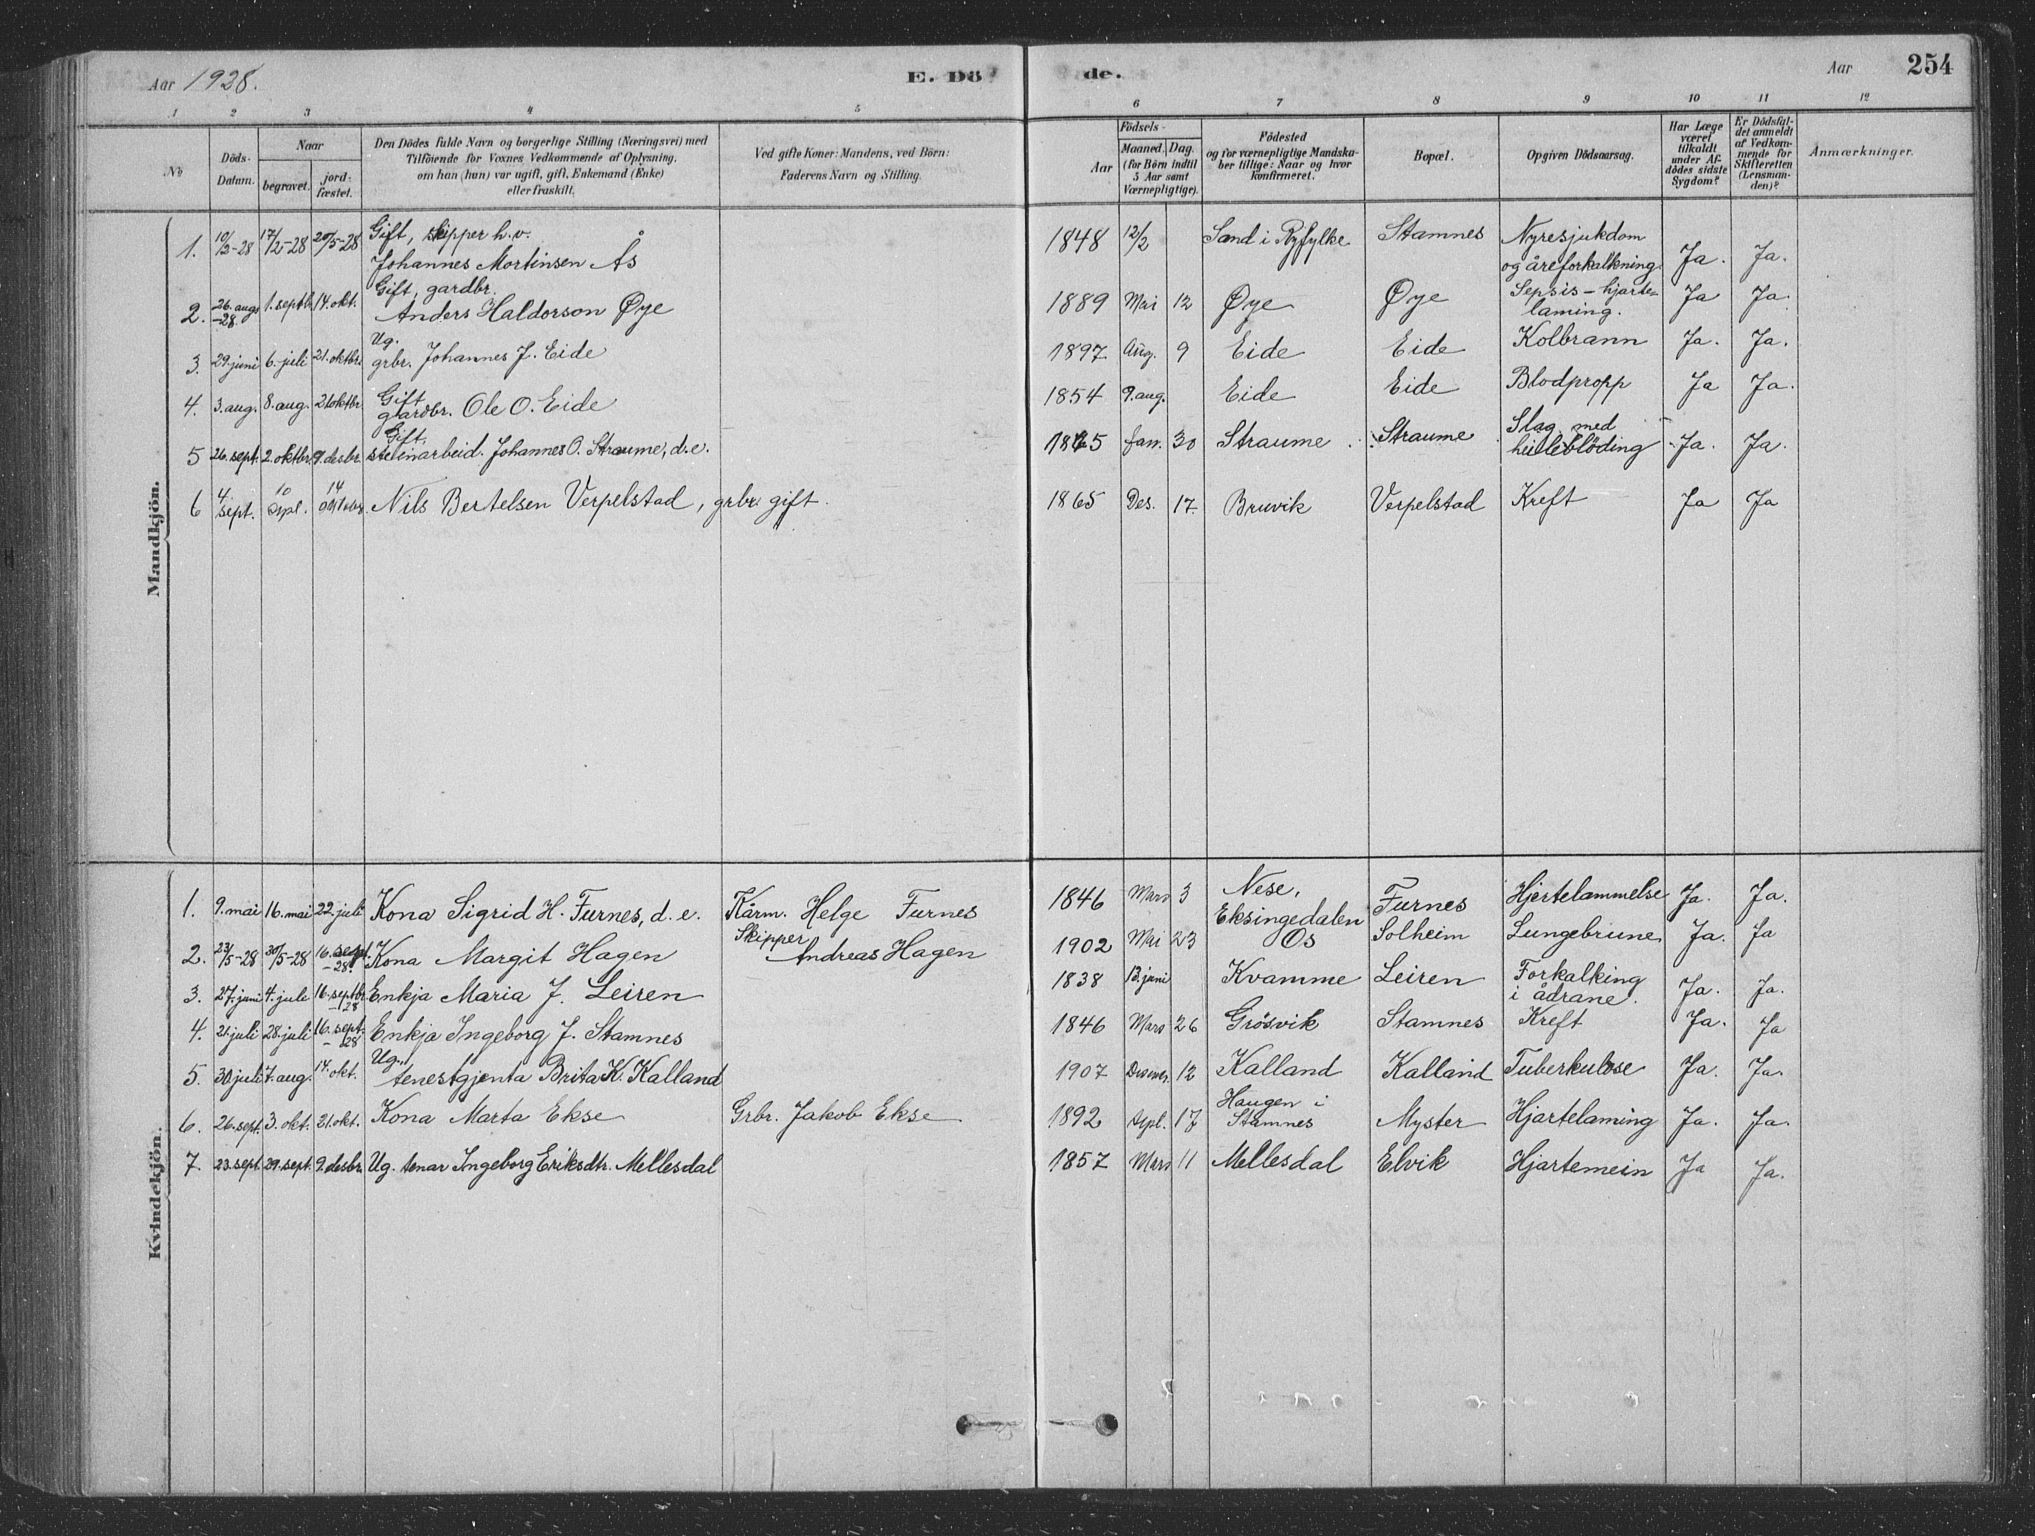 Aar 1928.
E. Döde.
Aar
254
1 2 3 4 5 6 7 8 9 10 11 12
No
Döds-Datum.
Naar
begravet.
jord-fæstet.
Den Dödes fulde Navn og borgerlige Stilling (Næringsvei) med
Tilföiende for Voxnes Vedkommende af Oplysning,
om han (hun) var ugift, gift, Enkemand (Enke)
eller fraskilt.
Ved gifte Koner: Mandens, ved Börn:
Faderens Navn og Stilling.
Födsels-
Aar
Maaned. Dag.
(for Börn indtil
5 Aar samt
Værnepligtige).
Födested
og for værnepligtige Mandska-
ber tillige: Naar og hvor
konfirmeret.
Bopæl.
Opgiven Dödsaarsag.
Har Læge
været
tilkaldt
under Af-
dödes sidste
Sygdom?
Er Dödsfal-
det anmeldt
af Vedkom-
mende for
Skifteretten
(Lensman-
den)?
Anmærkninger.
Mandkjön.
1. 10/2-28 17/2-28 20/5-28 Gift, skipper h.v. Johannes Mortinsen Ås 1848 12/2 Sand i Ryfylke Stamnes Nyresjukdom og åreforkalkning. Ja. Ja.
2. 26. aug -28. 1. septb. 14. okt. Gift, gardbr. Anders Haldorson Øye 1889 Mai 12 Øye Øye Sepsis - hjarte- laming. Ja Ja.
3. 29. juni 6. juli 21. oktbr. Ug. grbr. Johannes J. Eide 1897 Aug. 9 Eide Eide Kolbrann Ja. Ja.
4. 3. aug. 8. aug. 21. oktbr. Gift gardbr. Ole O. Eide 1854 9. aug. Eide Eide Blodpropp Ja Ja.
5 26. sept. 2. oktbr. 9. desbr. Gift, steinarbeid. Johannes O. Straume, d.e. Jan. 30 Straume Straume Slag med heilebløding Ja. Ja.
6 4/sept. 10 sept. 14 oktobr. Nils Bertelsen Verpelstad, grbr. gift. 1865 Des. 17. Bruvik Verpelstad Kreft Ja Ja
Kvindekjön.
1. 9. mai 16. mai 22. juli Kona Sigrid H. Furnes, d.e. Kårm. Helge Furnes 1846 Mars 3 Nese, Eksingedalen Furnes Hjertelammelse Ja. Ja.
2. 23/5-28 30/5-28 16. sept. -28. Kona Margit Hagen Skipper Andreas Hagen 1902 Mai 23 Os Solheim Lungebrune Ja. Ja
3. 27. juni 4. jule 16. septbr. -28 Enkja Maria J. Leiren 1838 13. juni Kvamme Leiren Forkalking i ådrane. Ja. Ja.
4. 21. juli 28. juli 16. sept. -28 Enkja Ingeborg J. Stamnes 1846 Mars 26 Grøsvik Stamnes Kreft Ja. Ja
5. 30. juli 7. aug. 14. okt. Ug., tenestgjenta Brita K. Kalland 1907 Desemr. 12 Kalland Kalland Tuberkulose Ja. Ja.
6. 26. sept. 3. okt. 21. okt. Kona Marta Ekse Grbr. Jakob Ekse 1892 Sept. 17 Haugen i Stamnes Myster Hjartelaming Ja. Ja.
7. 23. sept. 29. sept. 9. desbr. Ug. tenar Ingeborg Eriksdtr. Mellesdal 1857 Mars 11 Mellesdal Elvik Hjartemein Ja Ja.